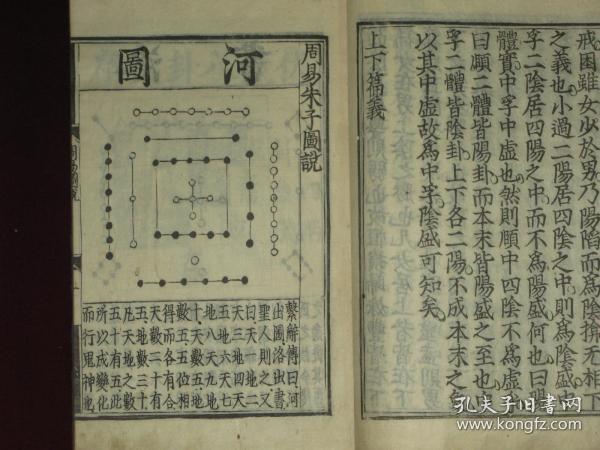 戒困雖女少於男乃陽陷而為陰揜无相下
之義也小過二陽居四陰之中則為陰盛中
孚二陰居四陽之中而不為陽盛何也曰陽
體實中孚中虛也然則頤中四陰不為虛乎
曰頤二體皆陽卦而本末皆陽盛之至也中
孚二體皆陰卦上下各二陽不成本末之象
以其中虛故為中孚陰盛可知矣
上下篇義
周易朱子圖說
河圖
繫辭傳曰河
出圖洛出書
聖人則之又
曰天一地二
天三地四天
五地六天七
地八天九地
十天數五地
數五五位相
得而各有合
天數二十有
五地數三十
凡天地之數
五十有五此
所以成變化
而行鬼神也
孔夫子旧书网
www.kongfz.com